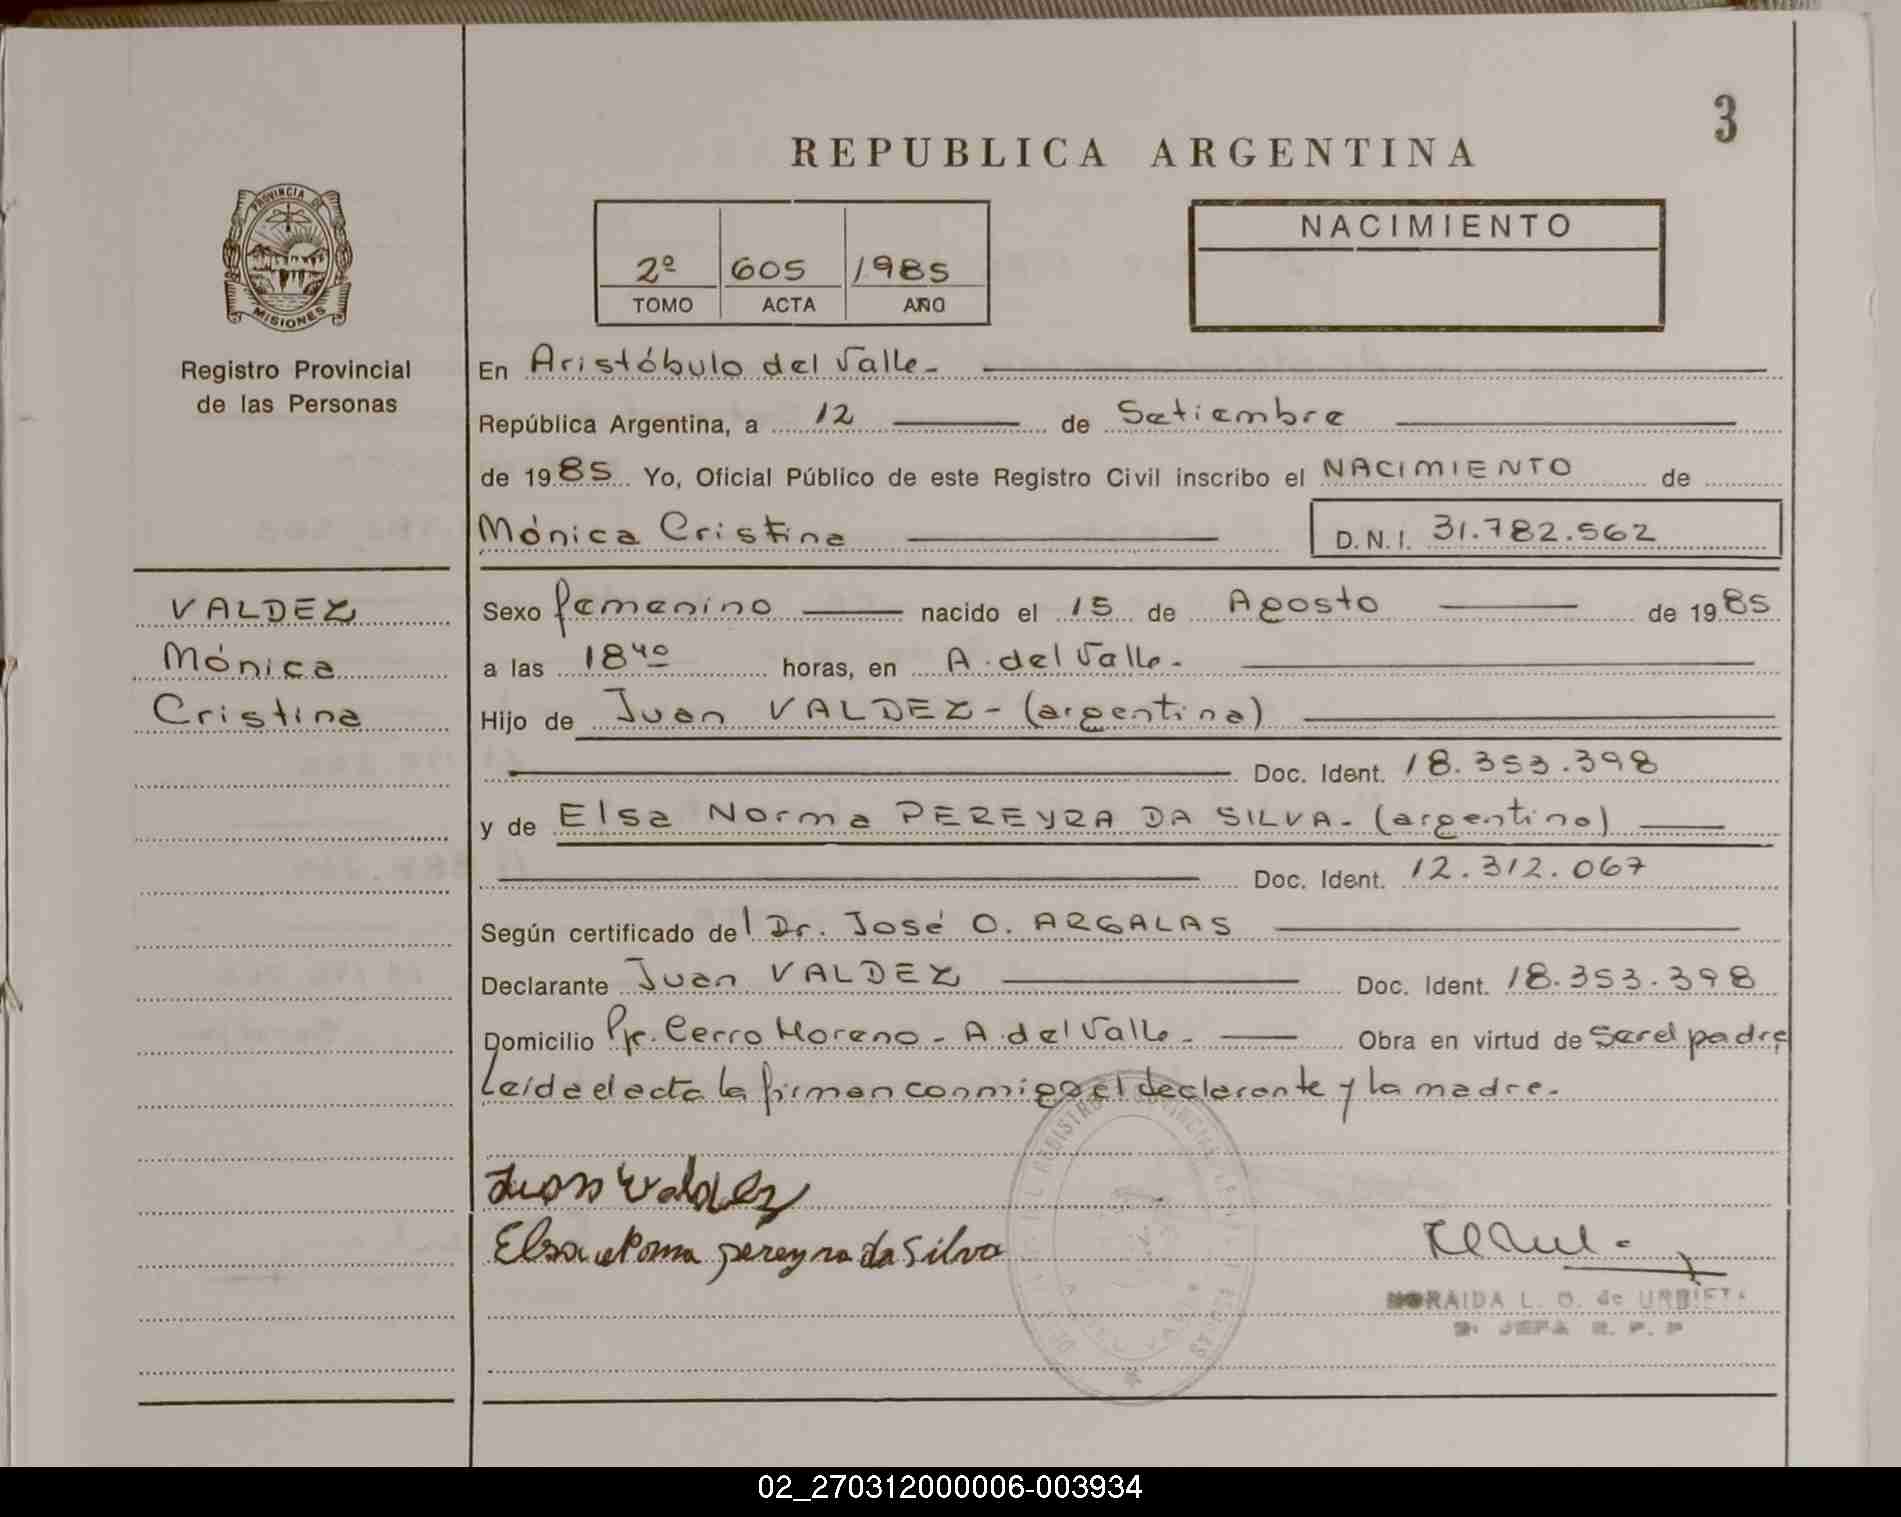 3
REPUBLICA ARGENTINA
PROVINCIA DE
MISIONES
Registro Provincial
de las Personas
2º 605 1985
TOMO ACTA AÑO
NACIMIENTO
En Aristóbulo del Valle.-
República Argentina, a 12 de Setiembre
de 1985 Yo, Oficial Público de este Registro Civil inscribo el NACIMIENTO de
Mónica Cristina D.N.I. 31.782.562
VALDEZ
Mónica
Cristina
Sexo femenino nacido el 15 de Agosto de 1985
a las 18 40 horas, en A. del Valle.-
Hijo de Juan VALDEZ - (argentina)
Doc. Ident. 18.353.398
y de Elsa Norma PEREYRA DA SILVA.- (argentina)
Doc. Ident. 12.312.067
Según certificado del Dr. José O. ARGALAS
Declarante Juan VALDEZ Doc. Ident. 18.353.398
Domicilio Pje. Cerro Moreno - A. del Valle.- Obra en virtud de Ser el padre
Leída el acta la firman conmigo el declarante y la madre.-
Juan Valdez
Elsa norma pereyra da Silva
NORAIDA L. O. de URBIETA
JEFA R. P. P
02_270312000006-003934